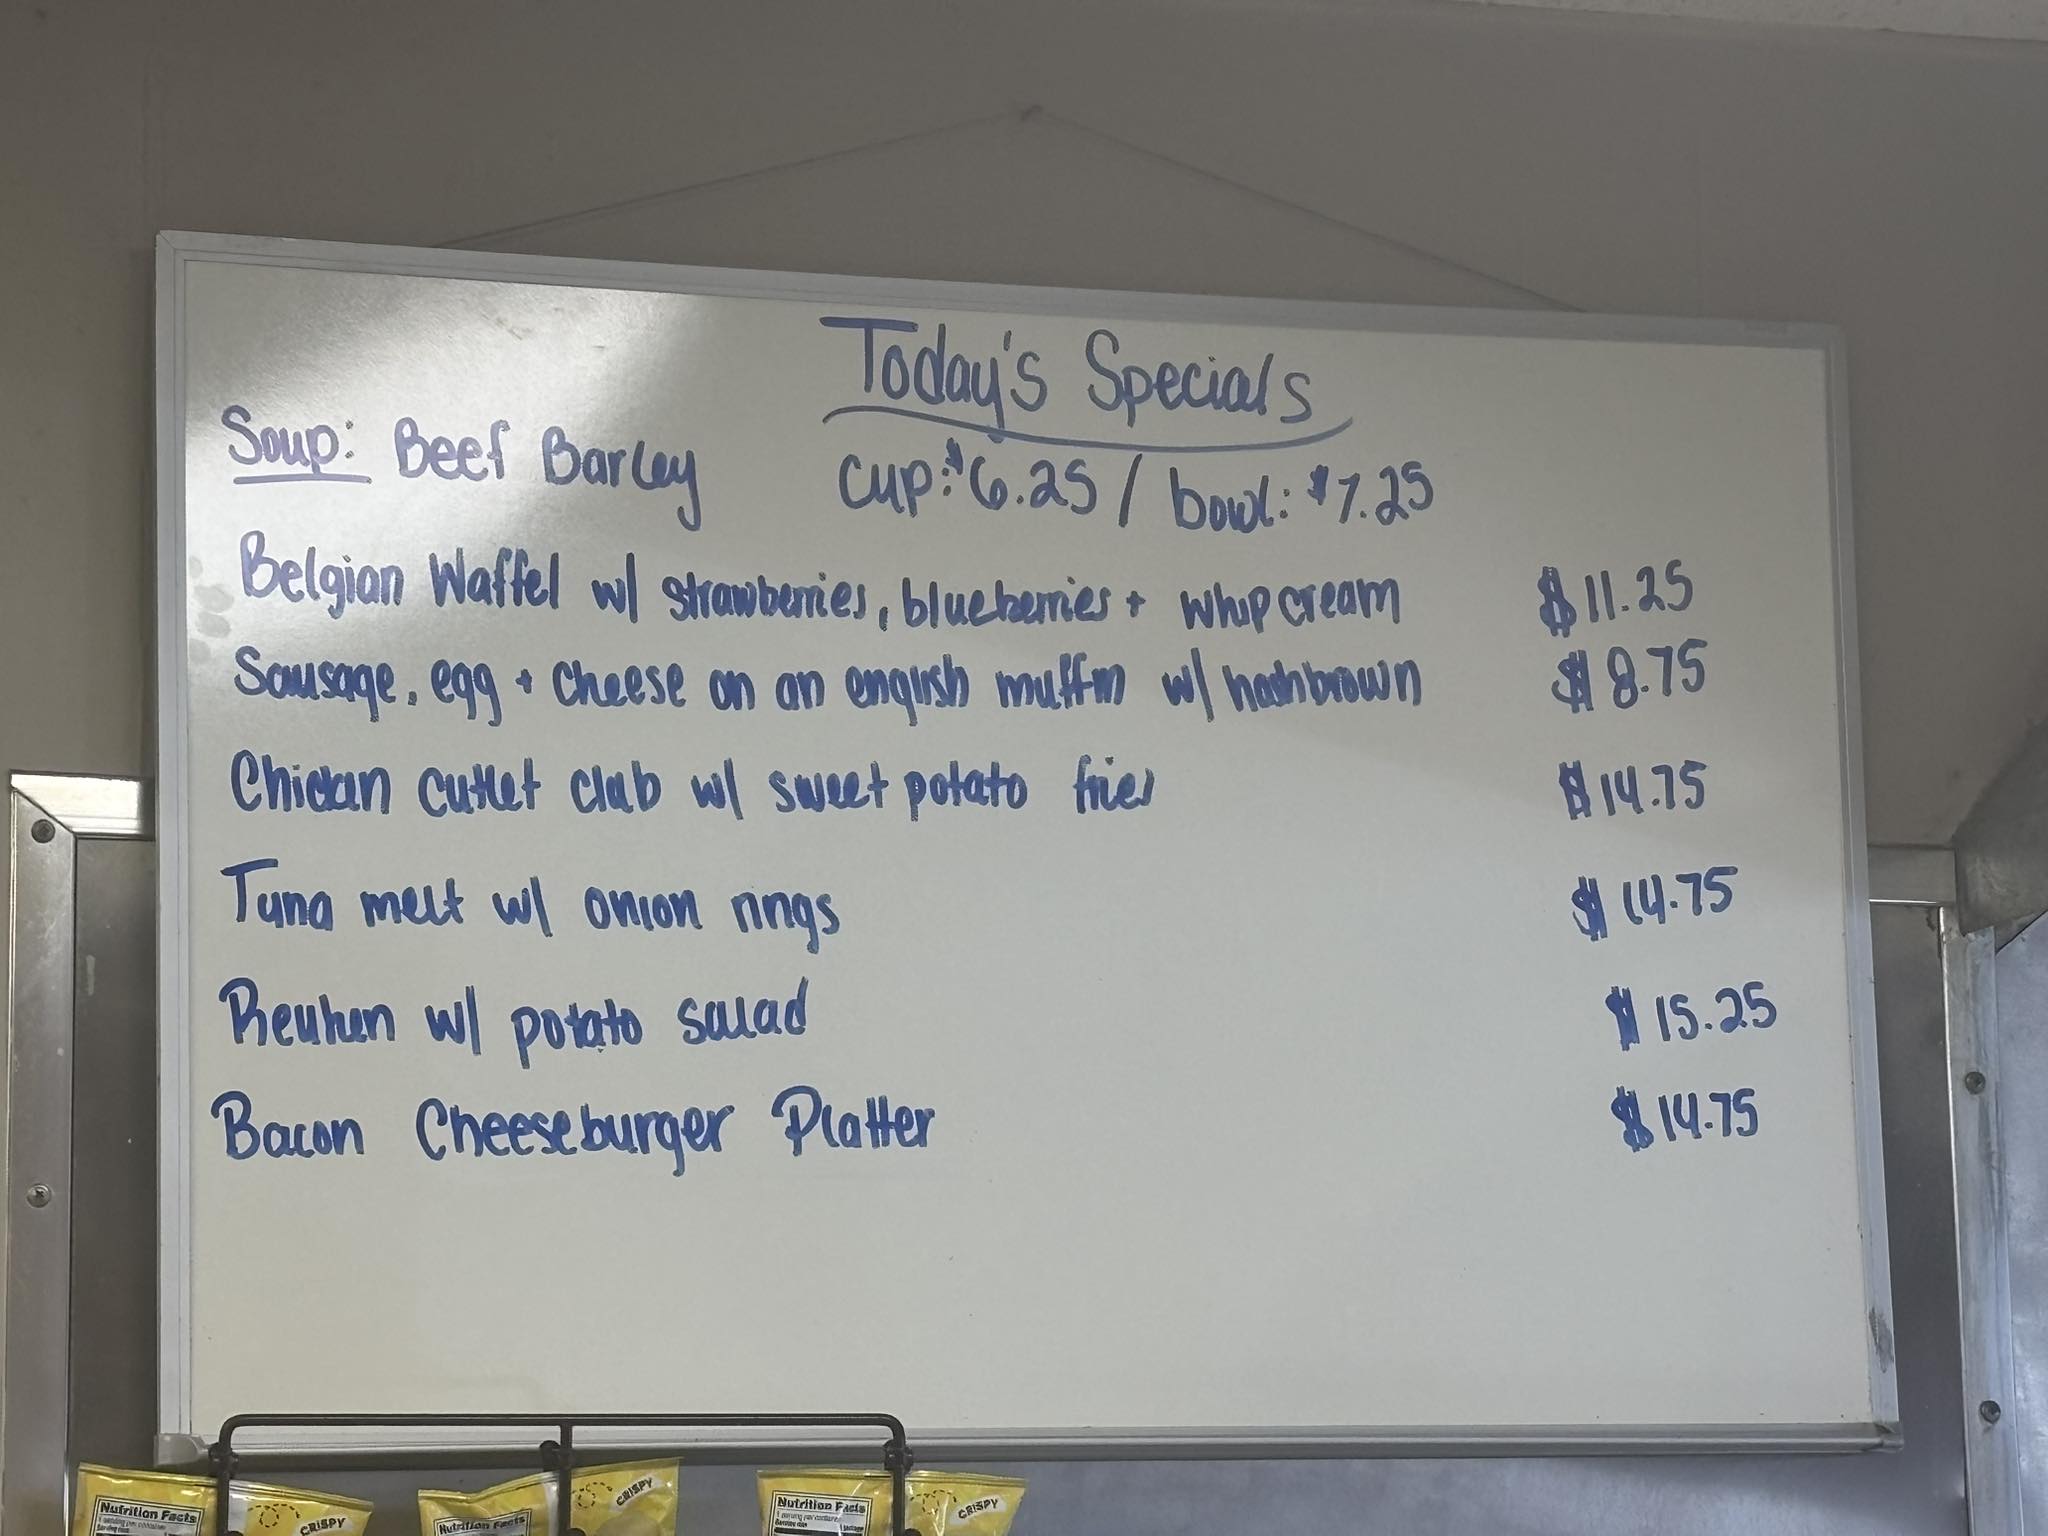 Today's Specials
Soup: Beef Barley cup: $6.25 / bowl: $7.25
Belgian Waffel w/ strawberries, blueberries + whip cream $11.25
Sausage, egg + cheese on an english muffin w/ hashbrown $8.75
Chicken cutlet club w/ sweet potato fries $14.75
Tuna melt w/ onion rings $14.75
Reuben w/ potato salad $15.25
Bacon Cheeseburger Platter $14.75
Nutrition Facts CRISPY Nutrition Facts CRISPY Nutrition Facts CRISPY